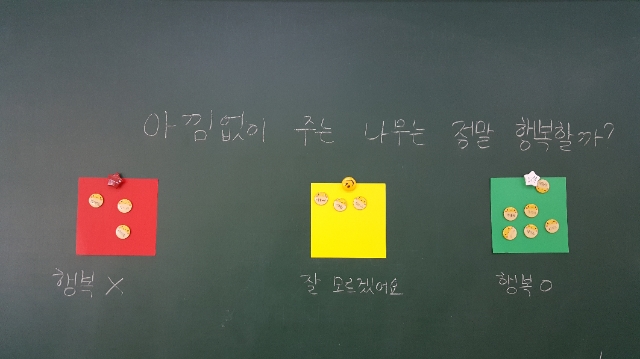 아낌없이 주는 나무는 정말 행복할까?
행복 X
잘 모르겠어요
행복 O